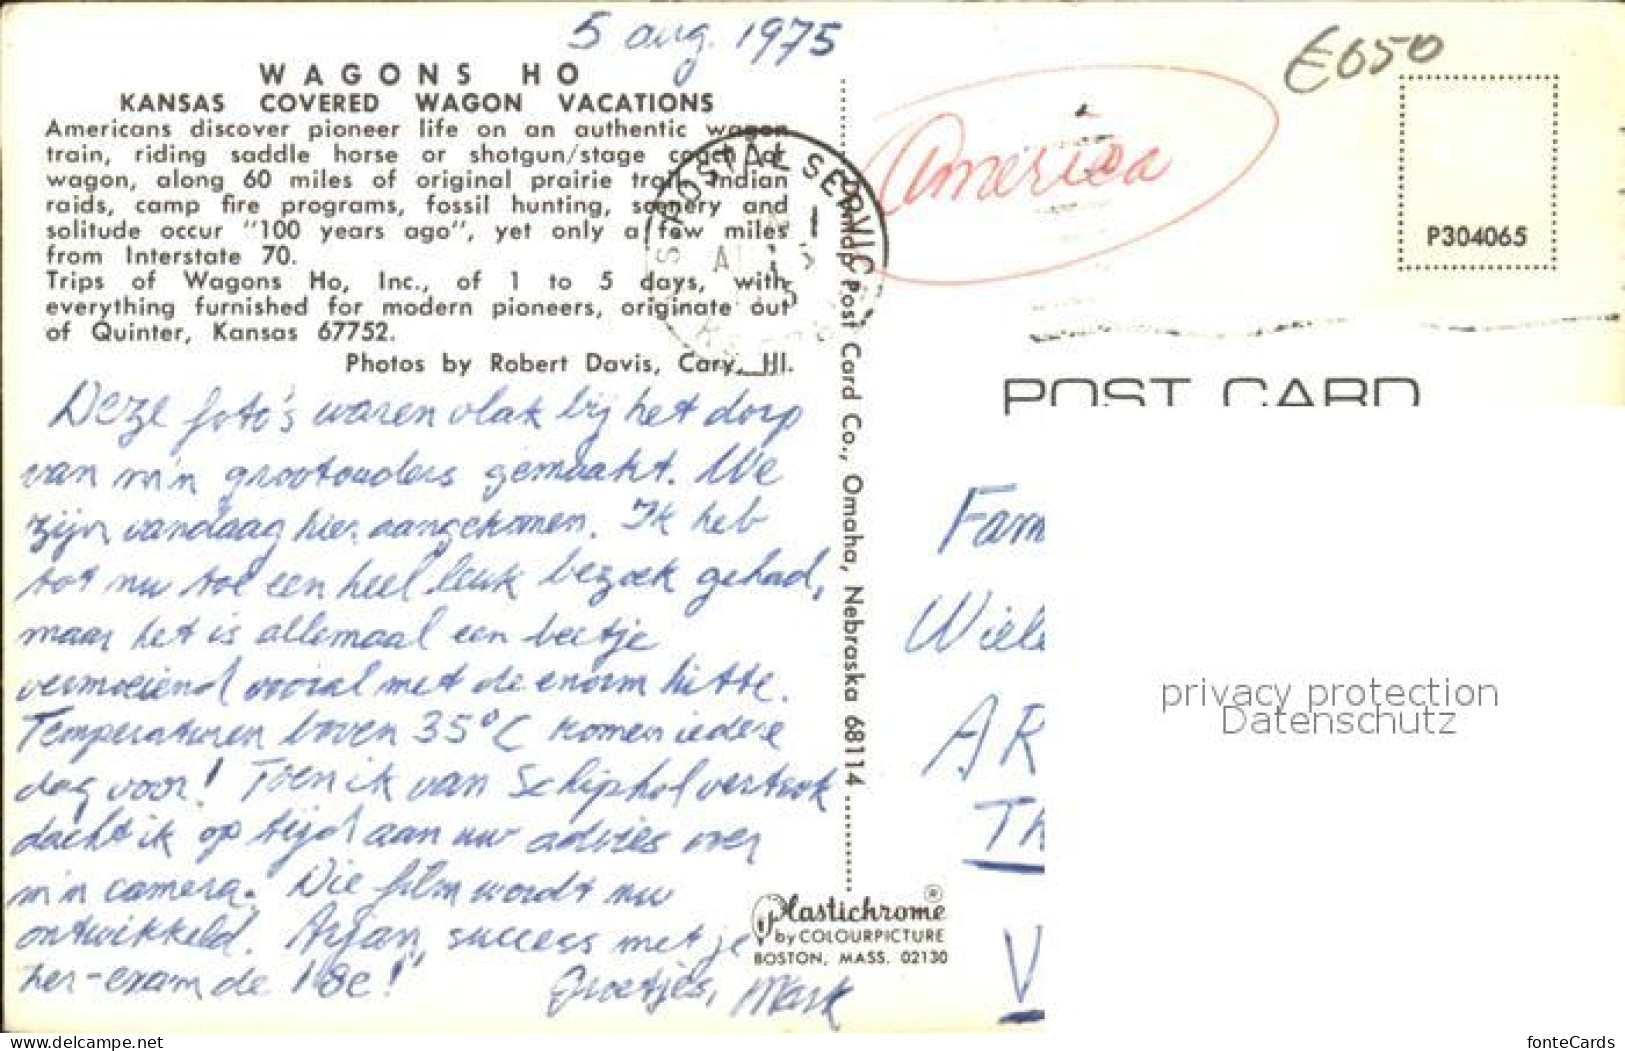 5 aug. 1975
WAGONS HO
KANSAS COVERED WAGON VACATIONS
Americans discover pioneer life on an authentic wagon
train, riding saddle horse or shotgun/stage coach or
wagon, along 60 miles of original prairie trail. Indian
raids, camp fire programs, fossil hunting, scenery and
solitude occur "100 years ago", yet only a few miles
from Interstate 70.
Trips of Wagons Ho, Inc., of 1 to 5 days, with
everything furnished for modern pioneers, originate out
of Quinter, Kansas 67752.
Photos by Robert Davis, Cary, Ill.
Deze foto's waren vlak bij het dorp
van m'n grootouders gemaakt. We
zijn vandaag hier aangekomen. Ik heb
tot nu toe een heel leuk bezoek gehad,
maar het is allemaal een beetje
vermoeiend vooral met de enorm hitte.
Temperaturen boven 35°C komen iedere
dag voor! Toen ik van Schiphol vertrok
dacht ik op tijd aan uw advies over
m'n camera. Die film wordt nu
ontwikkeld. Arjan, success met je
her-exam de 18e!
Groetjes, Mark
POSTAL SERVICE
Post Card Co., Omaha, Nebraska 68114
Plastichrome ®
by COLOURPICTURE
BOSTON, MASS. 02130
America
€050
P304065
POST CARD
Fam
Wiel
AR
Th
V
privacy protection
Datenschutz
www.delcampe.net
fonteCards